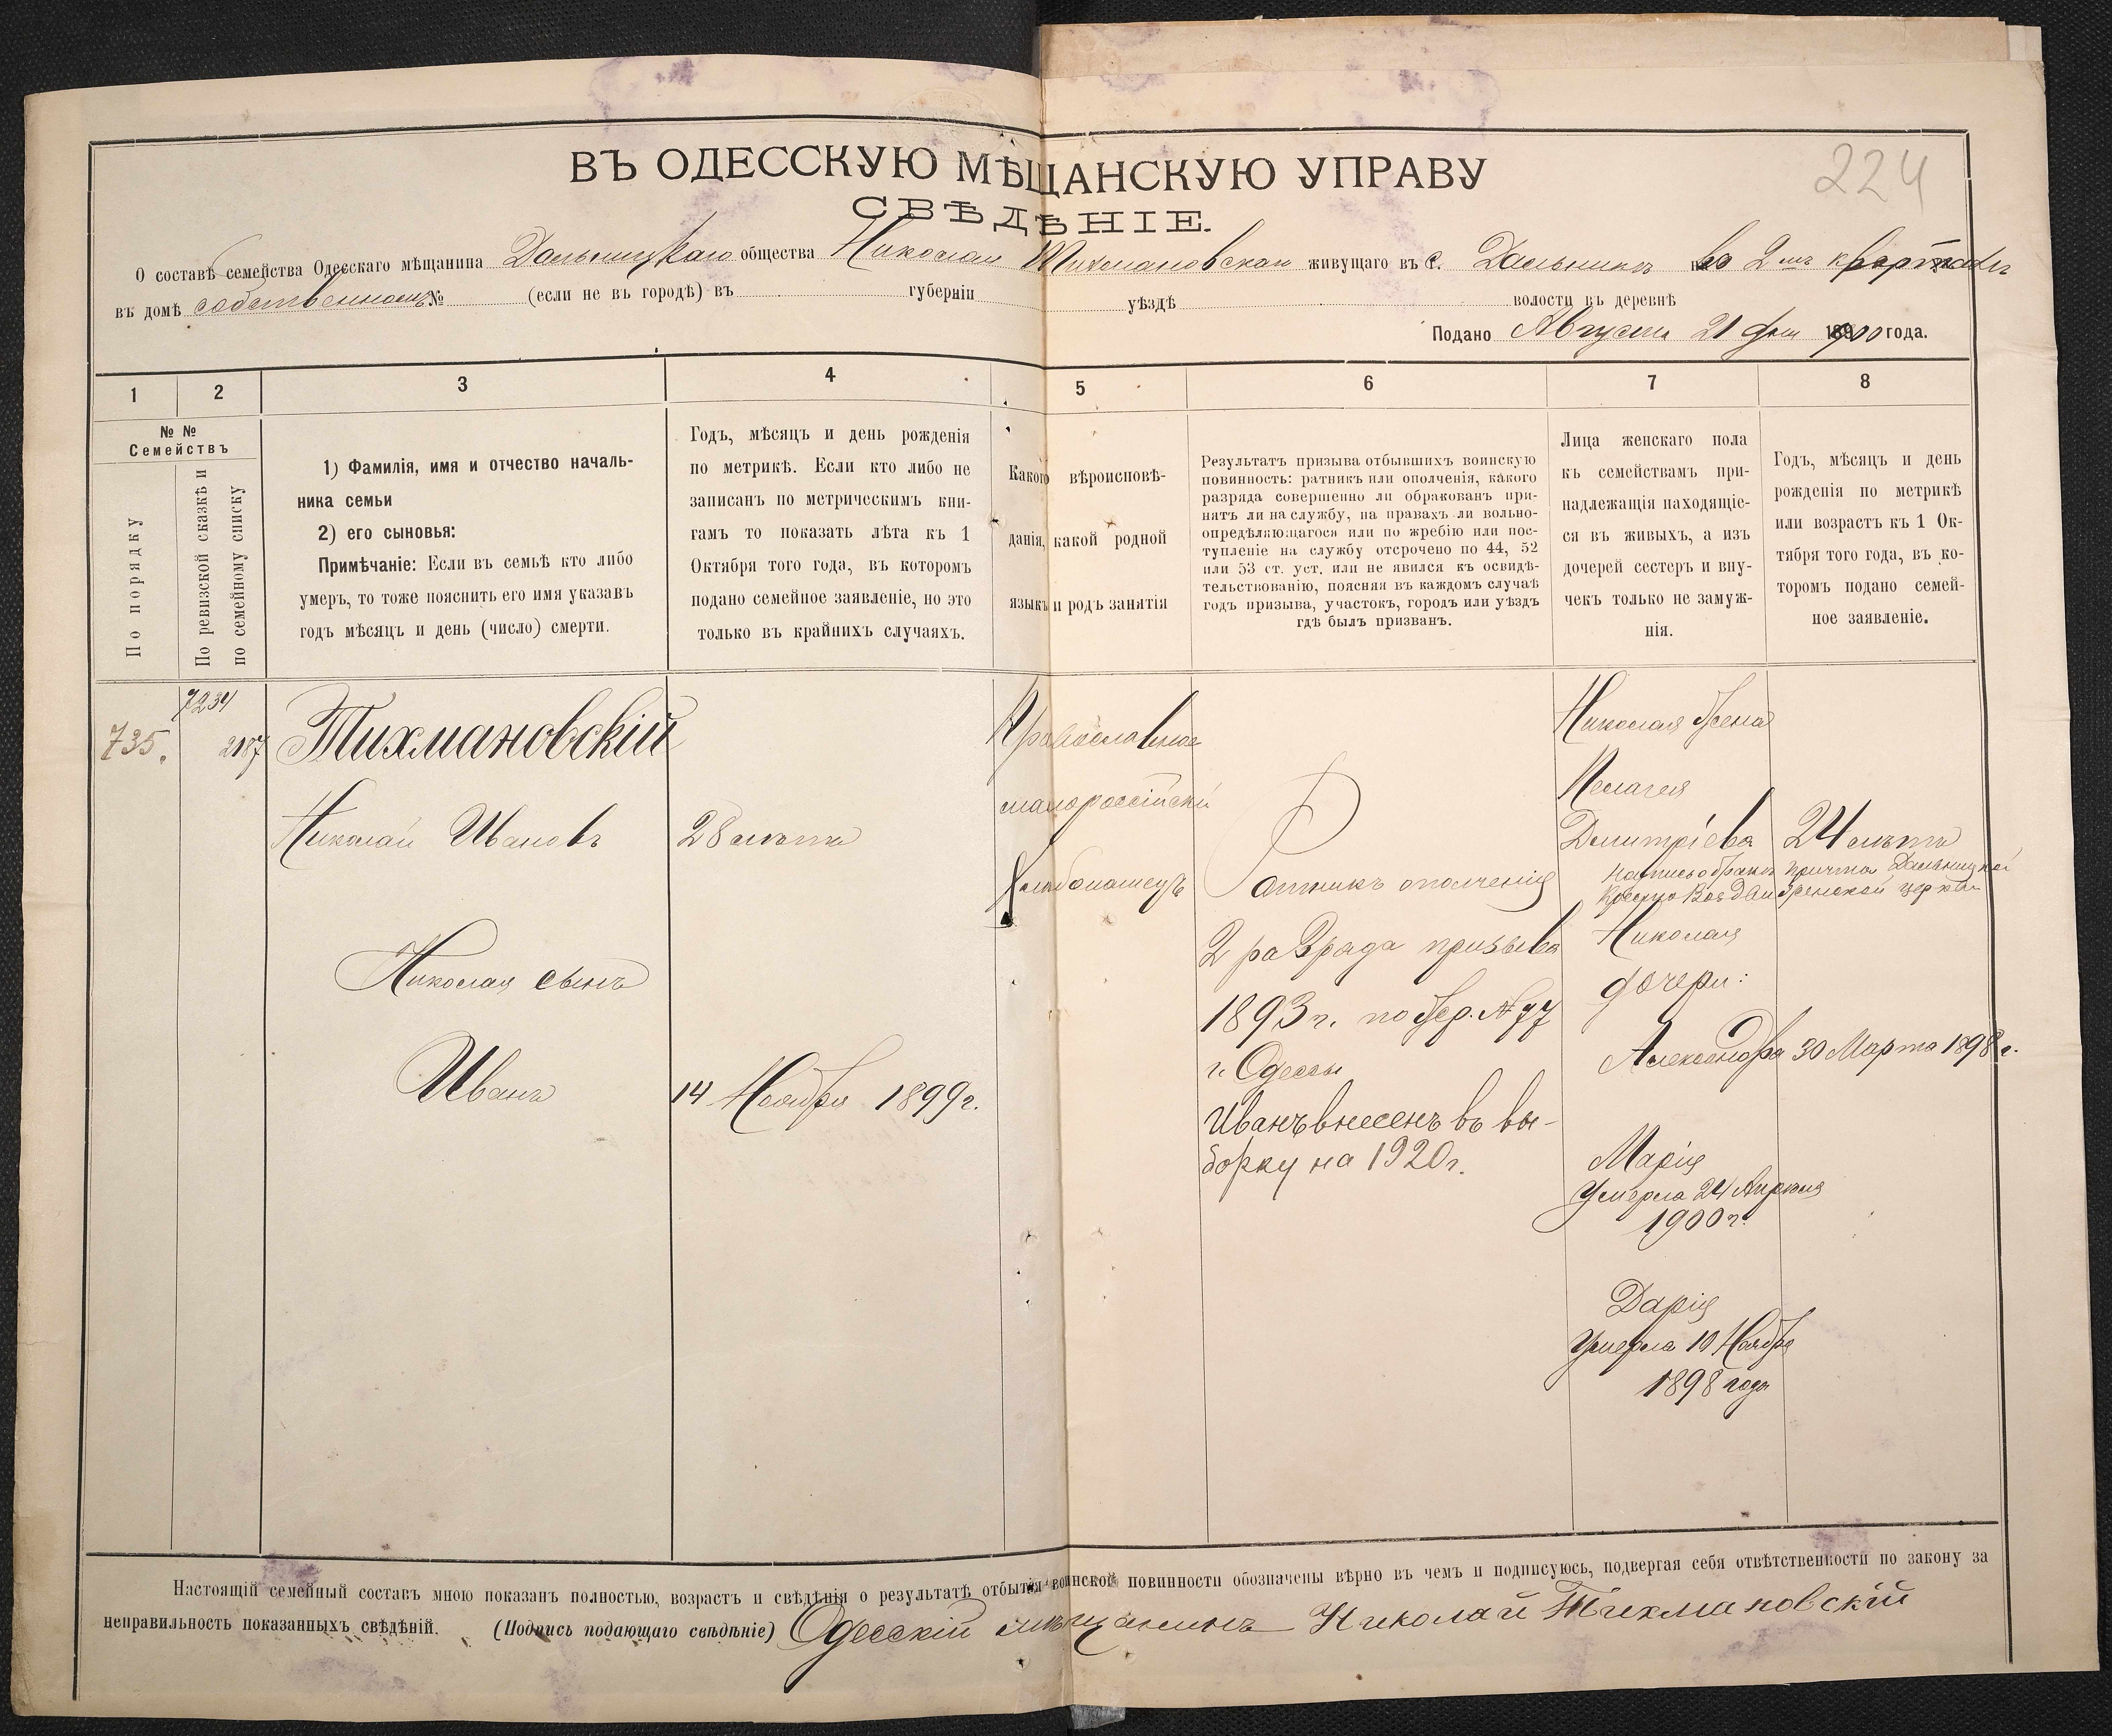 224
ВЪ ОДЕССКУЮ МѢЩАНСКУЮ УПРАВУ
СВѢДѢНІЕ.
О составѣ семейства Одесскаго мѣщанина Дальницкаго общества Николая Тихмановскаго живущаго въ с. Дальникъ во 2мъ кварталѣ
въ домѣ собственномъ № (если не въ городѣ) въ губерніи уѣздѣ волости въ деревнѣ
Подано Августа 21 дня 1900 года.
1 2 3 4 5 6 7 8
№ №
Семействъ
По порядку
По ревизской сказкѣ и
по семейному списку
1) Фамилія, имя и отчество началь-
ника семьи
2) его сыновья:
Примѣчаніе: Если въ семьѣ кто либо
умеръ, то тоже пояснить его имя указавъ
годъ мѣсяцъ и день (число) смерти.
Годъ, мѣсяцъ и день рожденія
по метрикѣ. Если кто либо не
записанъ по метрическимъ кни-
гамъ то показать лѣта къ 1
Октября того года, въ которомъ
подано семейное заявленіе, но это
только въ крайнихъ случаяхъ.
Какого вѣроисповѣ-
данія, какой родной
языкъ и родъ занятія
Результатъ призыва отбывшихъ воинскую
повинность: ратникъ или ополченія, какого
разряда совершенно ли обракованъ при-
нятъ ли на службу, на правахъ ли вольно-
опредѣляющагося или по жребію или пос-
тупленіе на службу отсрочено по 44, 52
или 53 ст. уст. или не явился къ освидѣ-
тельствованію, поясняя въ каждомъ случаѣ
годъ призыва, участокъ, городъ или уѣздъ
гдѣ былъ призванъ.
Лица женскаго пола
къ семействамъ при-
надлежащія находящіе-
ся въ живыхъ, а изъ
дочерей сестеръ и вну-
чекъ только не замуж-
нія.
Годъ, мѣсяцъ и день
рожденія по метрикѣ
или возрастъ къ 1 Ок-
тября того года, въ ко-
торомъ подано семей-
ное заявленіе.
7234
735. 2187
Тихмановскій
Николай Ивановъ
28 лѣтъ
Николая сынъ
Иванъ
14 Ноября 1899г.
Православное
малороссійскій
Хлѣбопашецъ
Ратникъ ополченія
2 разряда призыва
1893 г. по жер. № 77
г. Одессы
Иванъ внесенъ въ вы-
борку на 1920г.
Николая жена
Пелагея
Дмитріева 24 лѣтъ
причта Дальницкой
Кресто Воздвиженской церкви
Николая
дочери:
Александра 30 Марта 1898 г.
Марія
Умерла 24 Апрѣля
1900 г.
Дарія
Умерла 10 Ноября
1898 года
Настоящій семейный составъ мною показанъ полностью, возрастъ и свѣдѣнія о результатѣ отбытія воинской повинности обозначены вѣрно въ чемъ и подписуюсь, подвергая себя отвѣтственности по закону за
неправильность показанныхъ свѣдѣній. (Подпись подающаго свѣдѣніе) Одесскій мѣщанинъ Николай Тихмановскій